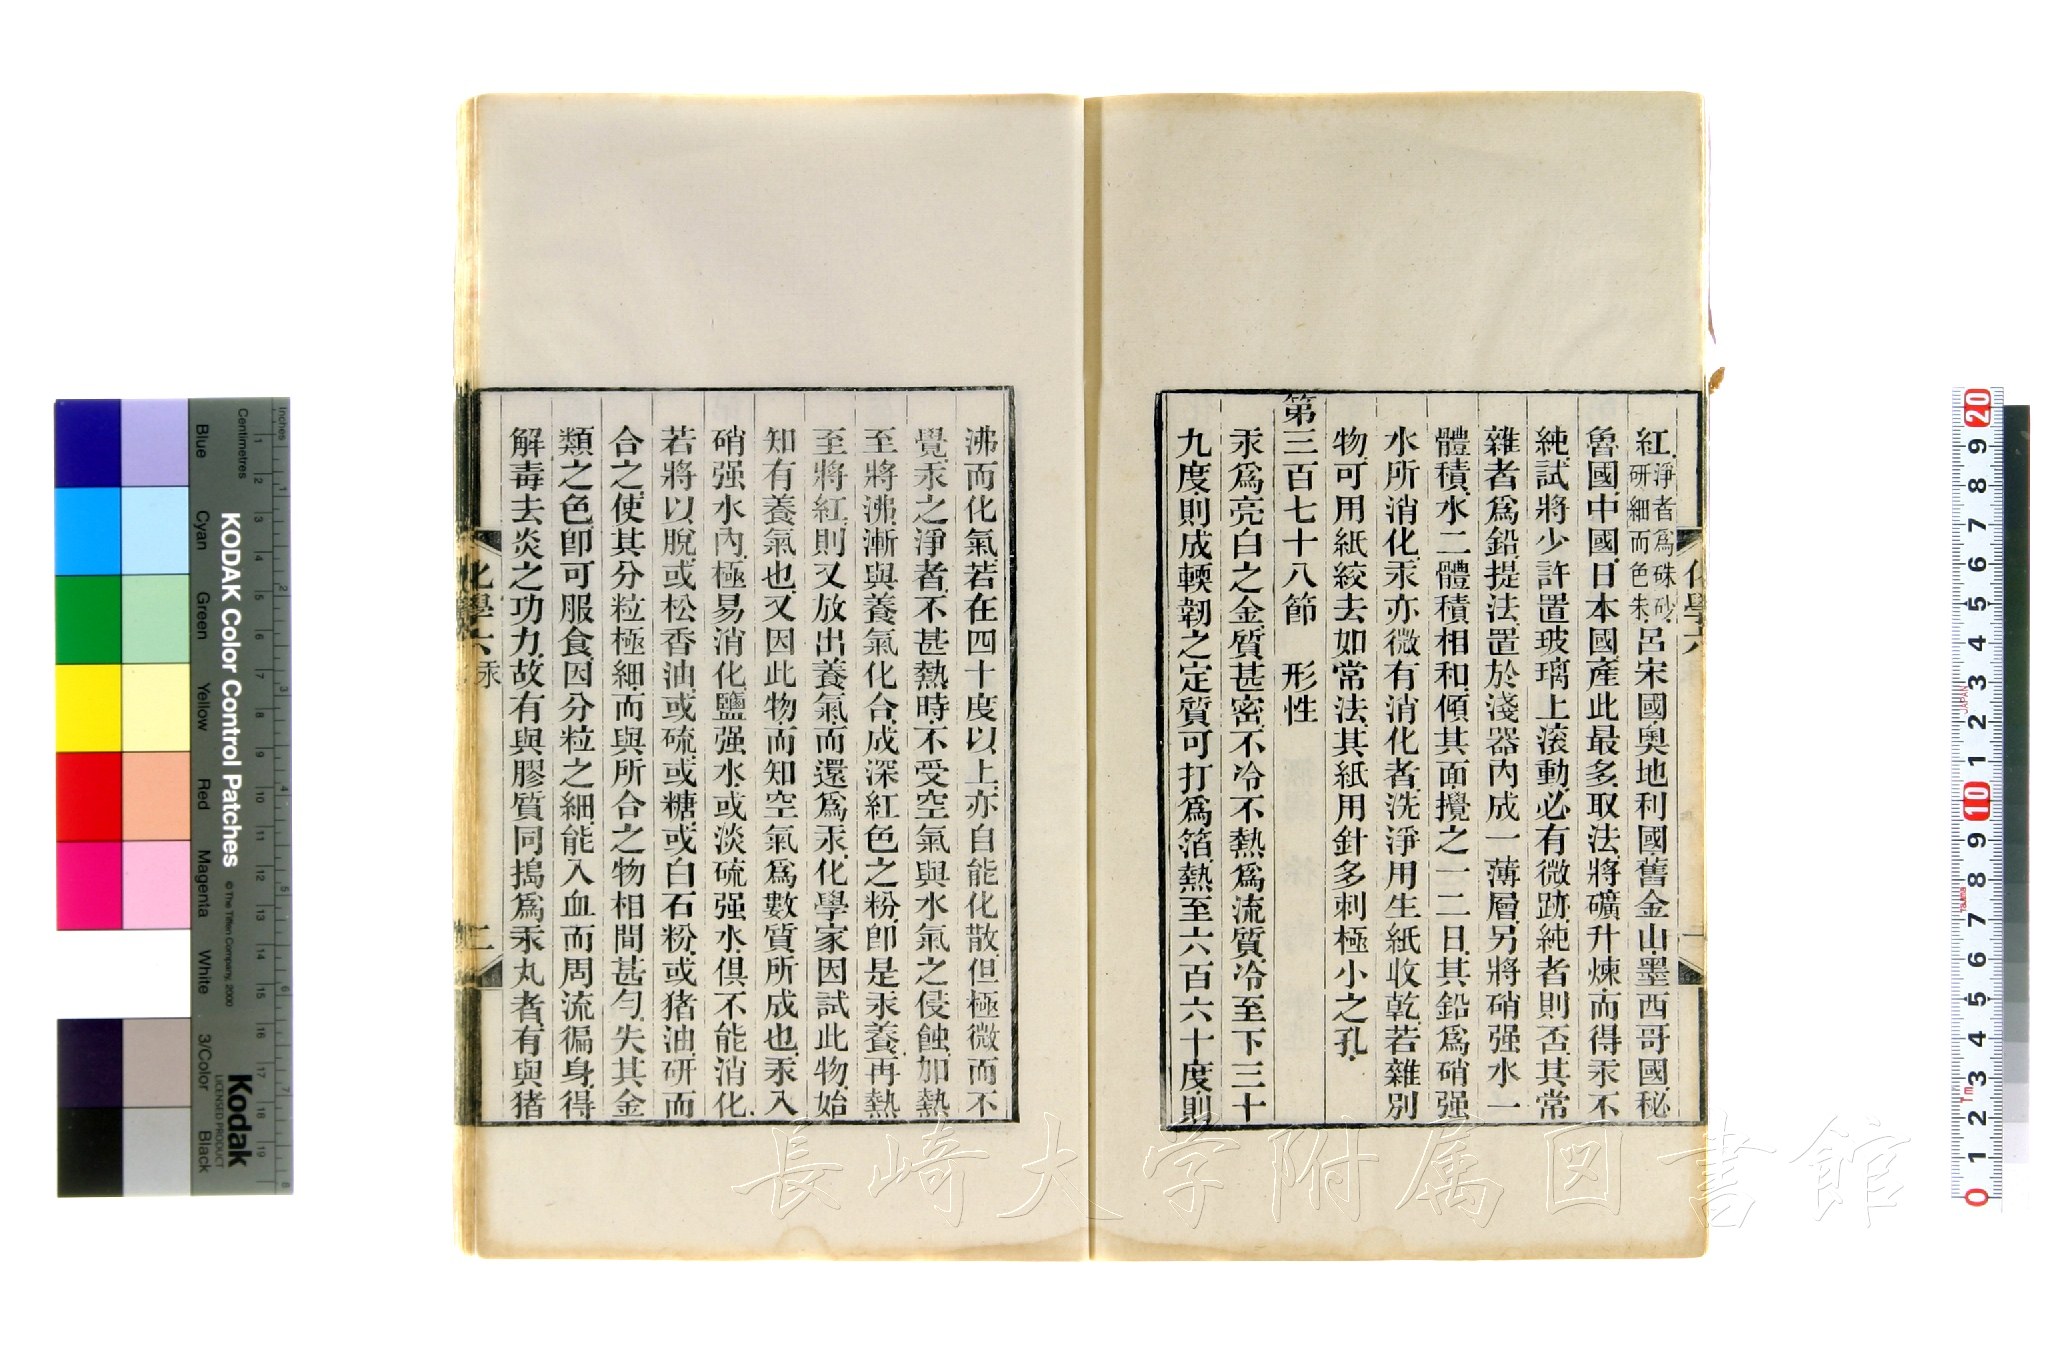 紅淨者爲硃砂研細而色朱呂宋國奧地利國舊金山墨西哥國秘
魯國中國日本國產此最多取法將礦升煉而得汞不
純試將少許置玻璃上滾動必有微跡純者則否其常
雜者爲鉛提法置於淺器內成一薄層另將硝强水一
體積水二體積相和傾其面攪之一二日其鉛爲硝强
水所消化汞亦微有消化者洗淨用生紙收乾若雜別
物可用紙絞去如常法其紙用針多刺極小之孔
第三百七十八節 形性
汞爲亮白之金質甚密不冷不熱爲流質冷至下三十
九度則成輭韌之定質可打爲箔熱至六百六十度則
化學六
一
沸而化氣若在四十度以上亦自能化散但極微而不
覺汞之淨者不甚熱時不受空氣與水氣之侵蝕加熱
至將沸漸與養氣化合成深紅色之粉卽是汞養再熱
至將紅則又放出養氣而還爲汞化學家因試此物始
知有養氣也又因此物而知空氣爲數質所成也汞入
硝强水內極易消化鹽强水或淡硫强水俱不能消化
若將以脫或松香油或硫或糖或白石粉或猪油研而
合之使其分粒極細而與所合之物相間甚勻失其金
類之色卽可服食因分粒之細能入血而周流徧身得
解毒去炎之功力故有與膠質同搗爲汞丸者有與猪
化學六 汞
二
KODAK Color Control Patches
© The Tiffen Company, 2000
Kodak
LICENSED PRODUCT
Inches
Centimetres
Blue
Cyan
Green
Yellow
Red
Magenta
White
3/Color
Black
1 2 3 4 5 6 7 8
1 2 3 4 5 6 7 8 9 10 11 12 13 14 15 16 17 18 19
0 1 2 3 4 5 6 7 8 9 10 1 2 3 4 5 6 7 8 9 20
JAPAN
長崎大学附属図書館